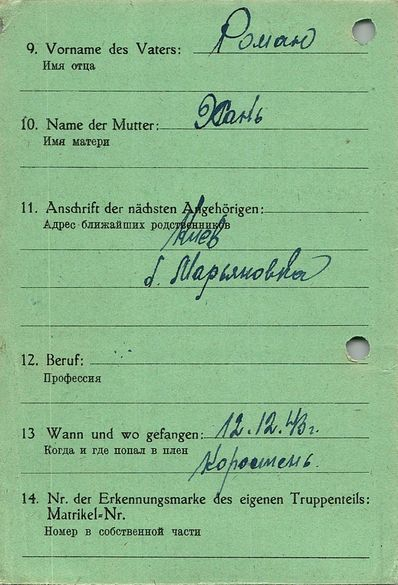 9. Vorname des Vaters: Роман
Имя отца
10. Name der Mutter: Хань
Имя матери
11. Anschrift der nächsten Angehörigen:
Адрес ближайших родственников
Киев
б. Марьяновка
12. Beruf:
Профессия
13 Wann und wo gefangen: 12.12.43г.
Когда и где попал в плен
Коростень.
14. Nr. der Erkennungsmarke des eigenen Truppenteils:
Matrikel=Nr.
Номер в собственной части